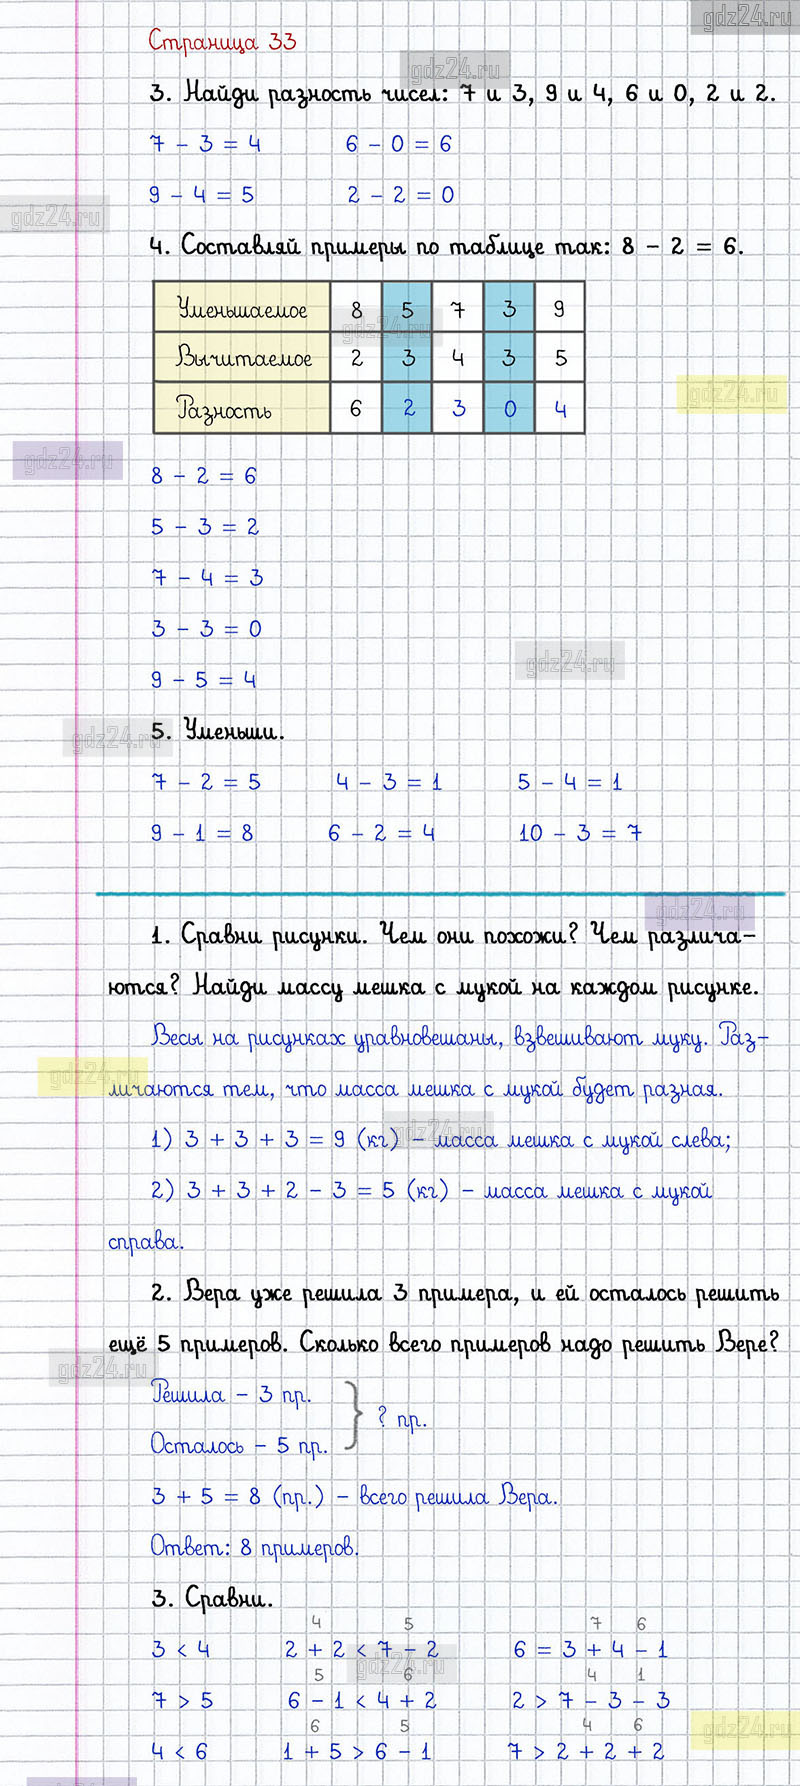 gdz24.ru
Страница 33
gdz24.ru
3. Найди разность чисел: 7 и 3, 9 и 4, 6 и 0, 2 и 2.
7 - 3 = 4 6 - 0 = 6
9 - 4 = 5 2 - 2 = 0
gdz24.ru
4. Составляй примеры по таблице так: 8 - 2 = 6.
Уменьшаемое 8 5 7 3 9
gdz24.ru
Вычитаемое 2 3 4 3 5
gdz24.ru
Разность 6 2 3 0 4
gdz24.ru
8 - 2 = 6
5 - 3 = 2
7 - 4 = 3
3 - 3 = 0
gdz24.ru
9 - 5 = 4
gdz24.ru
5. Уменьши.
7 - 2 = 5 4 - 3 = 1 5 - 4 = 1
9 - 1 = 8 6 - 2 = 4 10 - 3 = 7
gdz24.ru
1. Сравни рисунки. Чем они похожи? Чем различа-
ются? Найди массу мешка с мукой на каждом рисунке.
Весы на рисунках уравновешаны, взвешивают муку. Раз-
gdz24.ru
личаются тем, что масса мешка с мукой будет разная.
gdz24.ru
1) 3 + 3 + 3 = 9 (кг) - масса мешка с мукой слева;
2) 3 + 3 + 2 - 3 = 5 (кг) - масса мешка с мукой
справа.
2. Вера уже решила 3 примера, и ей осталось решить
ещё 5 примеров. Сколько всего примеров надо решить Вере?
gdz24.ru
Решила - 3 пр.
? пр.
Осталось - 5 пр.
3 + 5 = 8 (пр.) - всего решила Вера.
Ответ: 8 примеров.
3. Сравни.
4 5 7 6
3 < 4 2 + 2 < 7 - 2 6 = 3 + 4 - 1
gdz24.ru
5 6 4 1
7 > 5 6 - 1 < 4 + 2 2 > 7 - 3 - 3
6 5 4 6
gdz24.ru
4 < 6 1 + 5 > 6 - 1 7 > 2 + 2 + 2
gdz24.ru